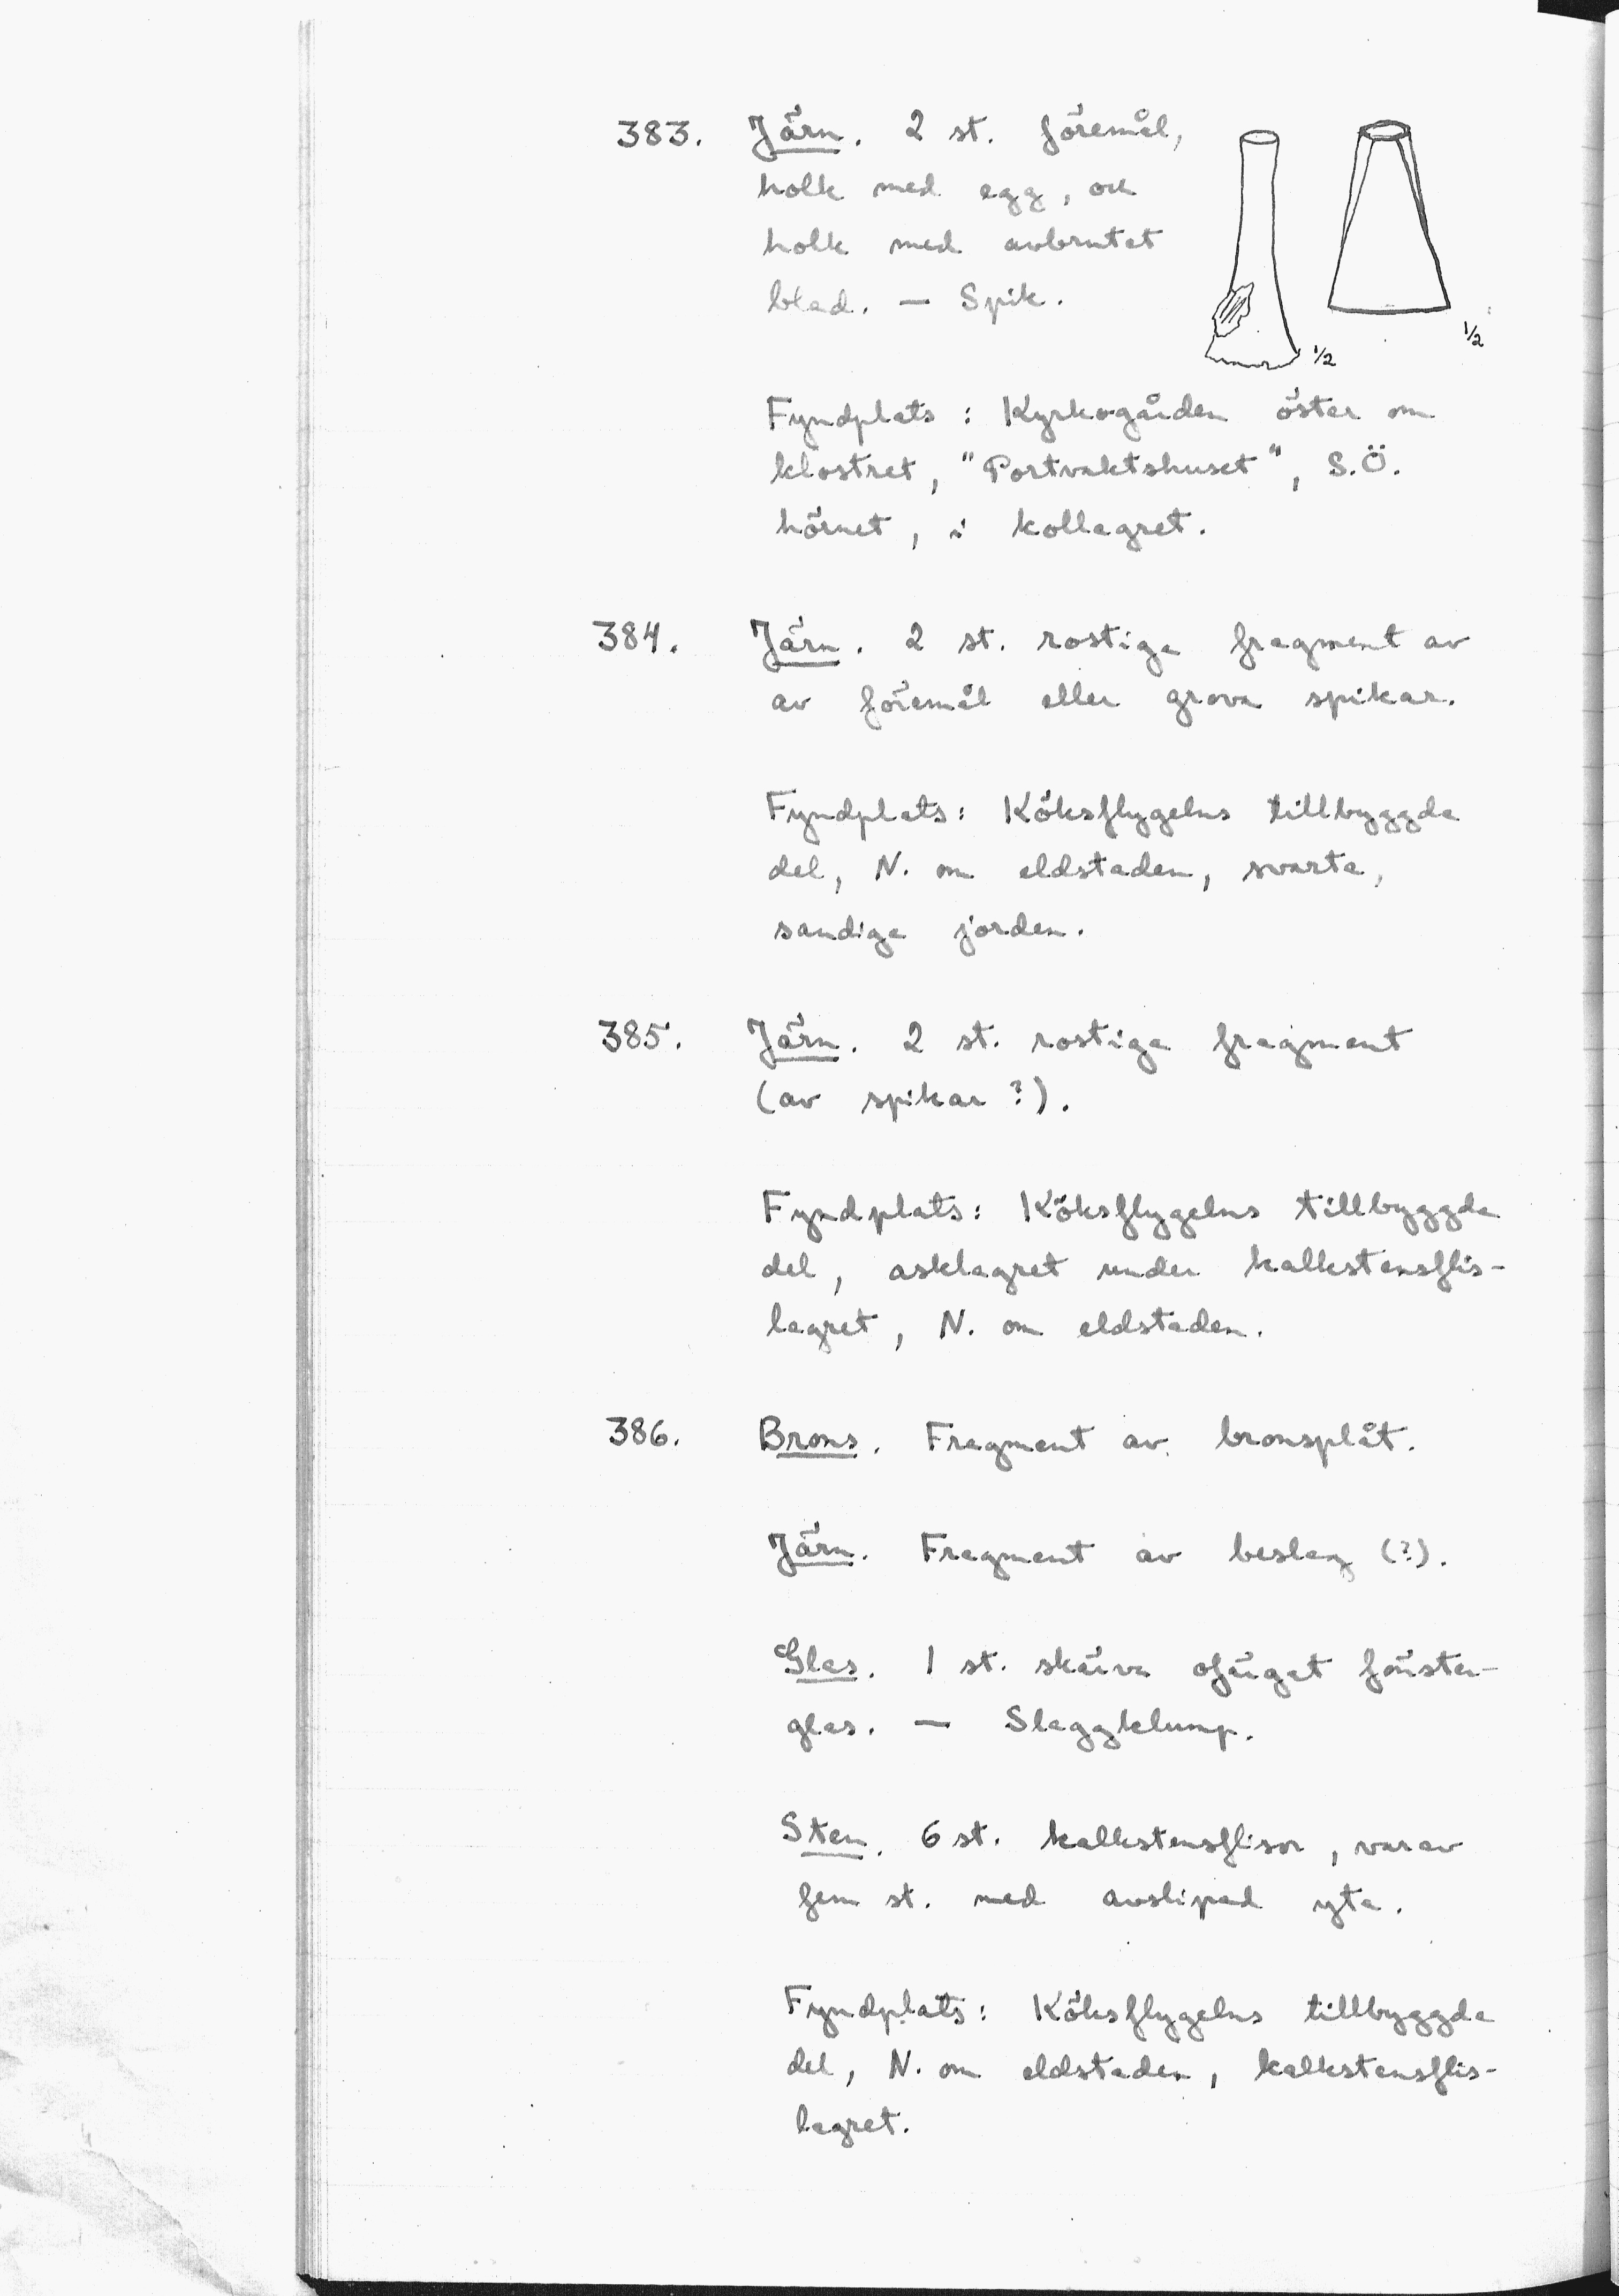 383. Järn. 2 st. föremål,
holk med egg, och
holk med avbrutet
blad. — Spik.
1/2
1/2
Fyndplats: Kyrkogården öster om
klostret, "Portvaktshuset", S.Ö.
hörnet, i kollagret.
384. Järn. 2 st. rostiga fragment av
av föremål eller grova spikar.
Fyndplats: Köksflygelns tillbyggda
del, N. om eldstaden, svarta,
sandiga jorden.
385. Järn. 2 st. rostiga fragment
(av spikar?).
Fyndplats: Köksflygelns tillbyggda
del, asklagret under kalkstensflis-
lagret, N. om eldstaden.
386. Brons. Fragment av bronsplåt.
Järn. Fragment av beslag (?).
Glas. 1 st. skärva ofärgat fönster-
glas. — Slaggklump.
Sten. 6 st. kalkstensflisor, varav
fem st. med avslipad yta.
Fyndplats: Köksflygelns tillbyggda
del, N. om eldstaden, kalkstensflis-
lagret.